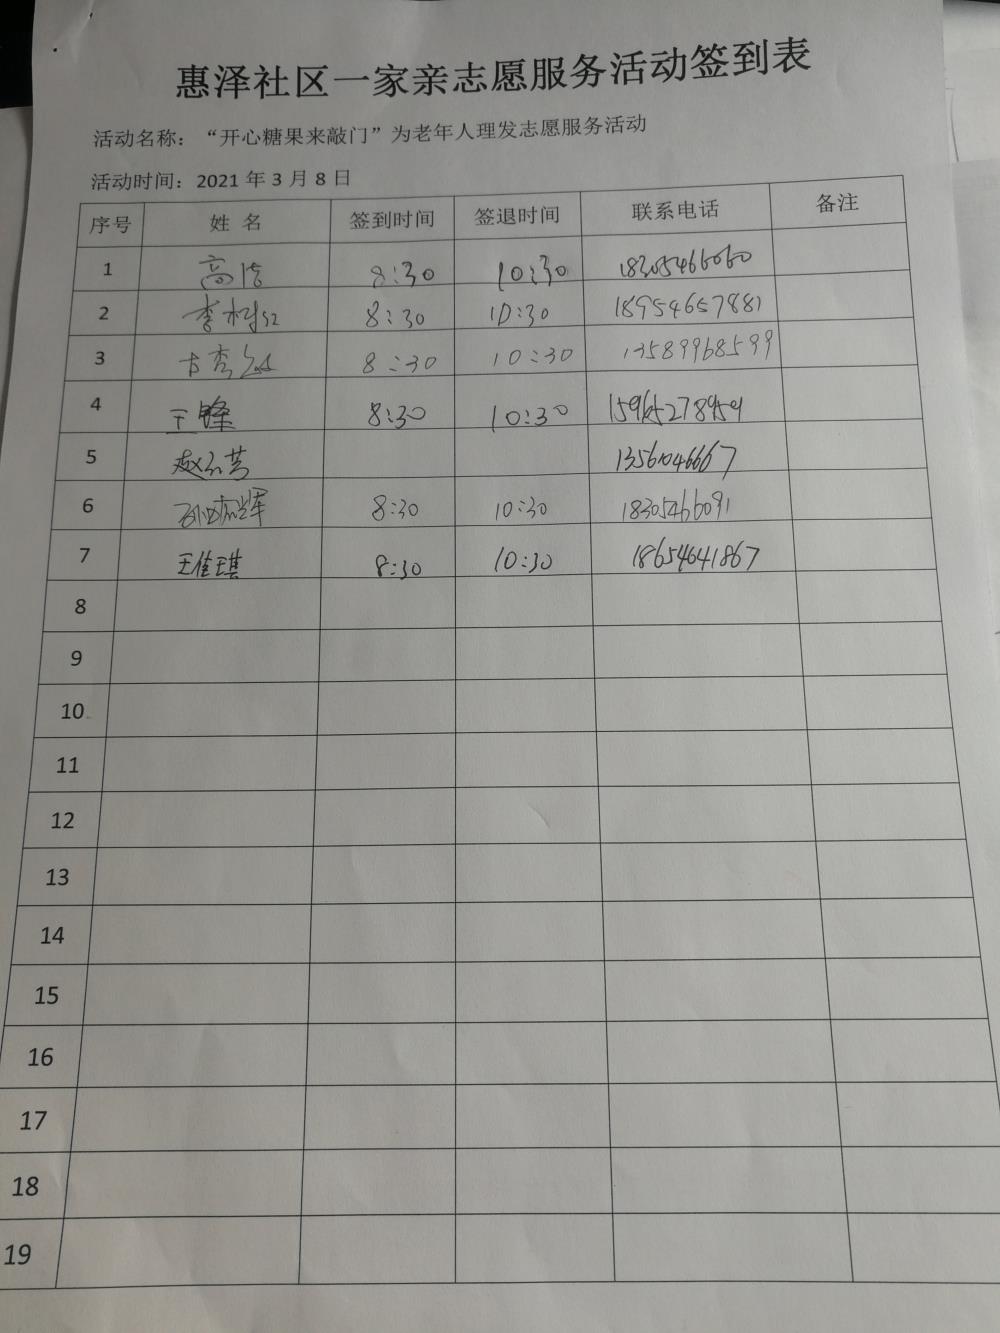 惠泽社区一家亲志愿服务活动签到表
活动名称：“开心糖果来敲门”为老年人理发志愿服务活动
活动时间：2021 年 3 月 8 日
序号 姓 名 签到时间 签退时间 联系电话 备注
1 高洁 8:30 10:30 18305466060
2 李树红 8:30 10:30 18954657881
3 8:30 10:30 13589968599
4 王锋 8:30 10:30
5 13561046667
6 8:30 10:30 18305466091
7 王佳琪 8:30 10:30 18654641867
8
9
10
11
12
13
14
15
16
17
18
19